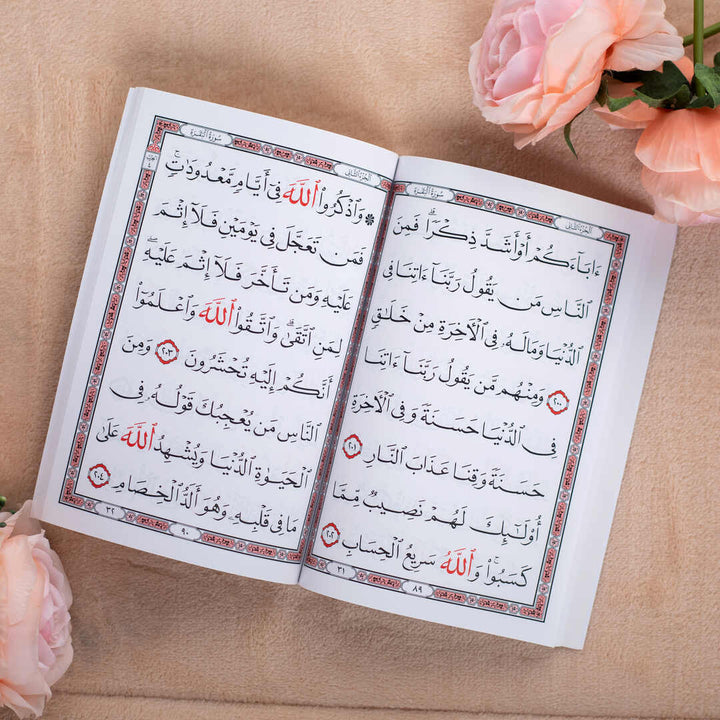 الجزء الثاني
سورة البقرة
ءَابَآءَكُمْ أَوْ أَشَدَّ ذِكْرًاۗ فَمِنَ
ٱلنَّاسِ مَن يَقُولُ رَبَّنَآ ءَاتِنَا فِى
ٱلدُّنْيَا وَمَا لَهُۥ فِى ٱلْأَخِرَةِ مِنْ خَلَٰقٍ
٢٠٠ وَمِنْهُم مَّن يَقُولُ رَبَّنَآ ءَاتِنَا
فِى ٱلدُّنْيَا حَسَنَةً وَفِى ٱلْأَخِرَةِ
حَسَنَةً وَقِنَا عَذَابَ ٱلنَّارِ ٢٠١
أُو۟لَٰٓئِكَ لَهُمْ نَصِيبٌ مِّمَّا
كَسَبُوا۟ۚ وَٱللَّهُ سَرِيعُ ٱلْحِسَابِ ٢٠٢
٨٩
٣١
الجزء الثاني
سورة البقرة
۞ وَٱذْكُرُوا۟ ٱللَّهَ فِىٓ أَيَّامٍ مَّعْدُودَٰتٍۚ
فَمَن تَعَجَّلَ فِى يَوْمَيْنِ فَلَآ إِثْمَ
عَلَيْهِ وَمَن تَأَخَّرَ فَلَآ إِثْمَ عَلَيْهِۖ
لِمَنِ ٱتَّقَىٰۗ وَٱتَّقُوا۟ ٱللَّهَ وَٱعْلَمُوٓا۟
أَنَّكُمْ إِلَيْهِ تُحْشَرُونَ ٢٠٣ وَمِنَ
ٱلنَّاسِ مَن يُعْجِبُكَ قَوْلُهُۥ فِى
ٱلْحَيَوٰةِ ٱلدُّنْيَا وَيُشْهِدُ ٱللَّهَ عَلَىٰ
مَا فِى قَلْبِهِۦ وَهُوَ أَلَدُّ ٱلْخِصَامِ ٢٠٤
٩٠
٣٢